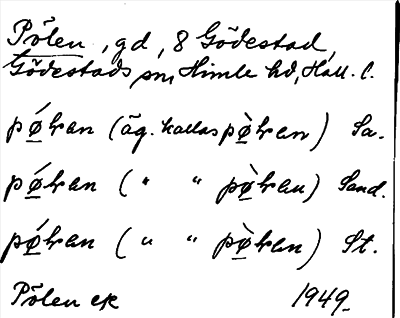 Pölen, gd, 8 Gödestad,
Gödestads sn, Himle hd, Hall. l.
pǿlan (äg. kallas pø̀lan) Sa.
pǿlan ( " " pø̀lan) Sand.
pǿlan ( " " pø̀lan) St.
Pölen ek 1949.